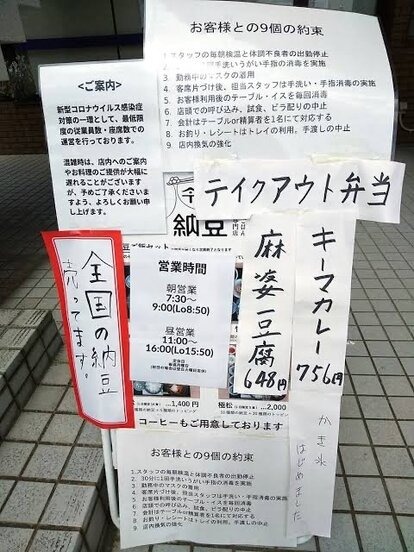 お客様との9個の約束
1.スタッフの毎朝検温と体調不良者の出勤停止
3 勤務中のマスクの着用
4 客席片づけ後、担当スタッフは手洗い・手指消毒の実施
5 お客様利用後のテーブル・イスを毎回消毒
6 店頭での呼び込み、試食、ビラ配りの中止
7 会計はテーブルor精算者を1名に対応する
8 お釣り・レシートはトレイの利用、手渡しの中止
9 店内換気の強化
<ご案内>
新型コロナウイルス感染症
対策の一環として、最低限
度の従業員数・座席数での
運営を行っております。
混雑時は、店内へのご案内
やお料理のご提供が大幅に
遅れることがございます
が、予めご了承くださいま
すよう、よろしくお願い申
し上げます。
テイクアウト弁当
キーマカレー756円
麻婆豆腐648円
かき氷はじめました
納豆
専門店
全国の納豆
売ってます。
営業時間
朝営業
7:30〜
9:00(Lo8:50)
昼営業
11:00〜
16:00(Lo15:50)
定休日
1,400円
極松
...2,000
コーヒーもご用意しております
お客様との9個の約束
1.スタッフの毎朝検温と体調不良者の出勤停止
2. 30分に1回手洗いうがい手指の消毒の実施
3. 勤務中のマスクの着用
4. 客席片づけ後、担当スタッフは手洗い・手指消毒の実施
5. お客様利用後のテーブル・イスを毎回消毒
6. 店頭での呼び込み、試食、ビラ配りの中止
7. 会計はテーブルor精算者を1名に対応する
8. お釣り・レシートはトレイの利用、手渡しの中止
9. 店内換気の強化